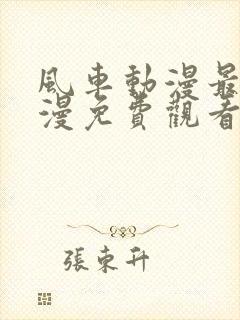 風車動漫最
漫免費觀看
張東升